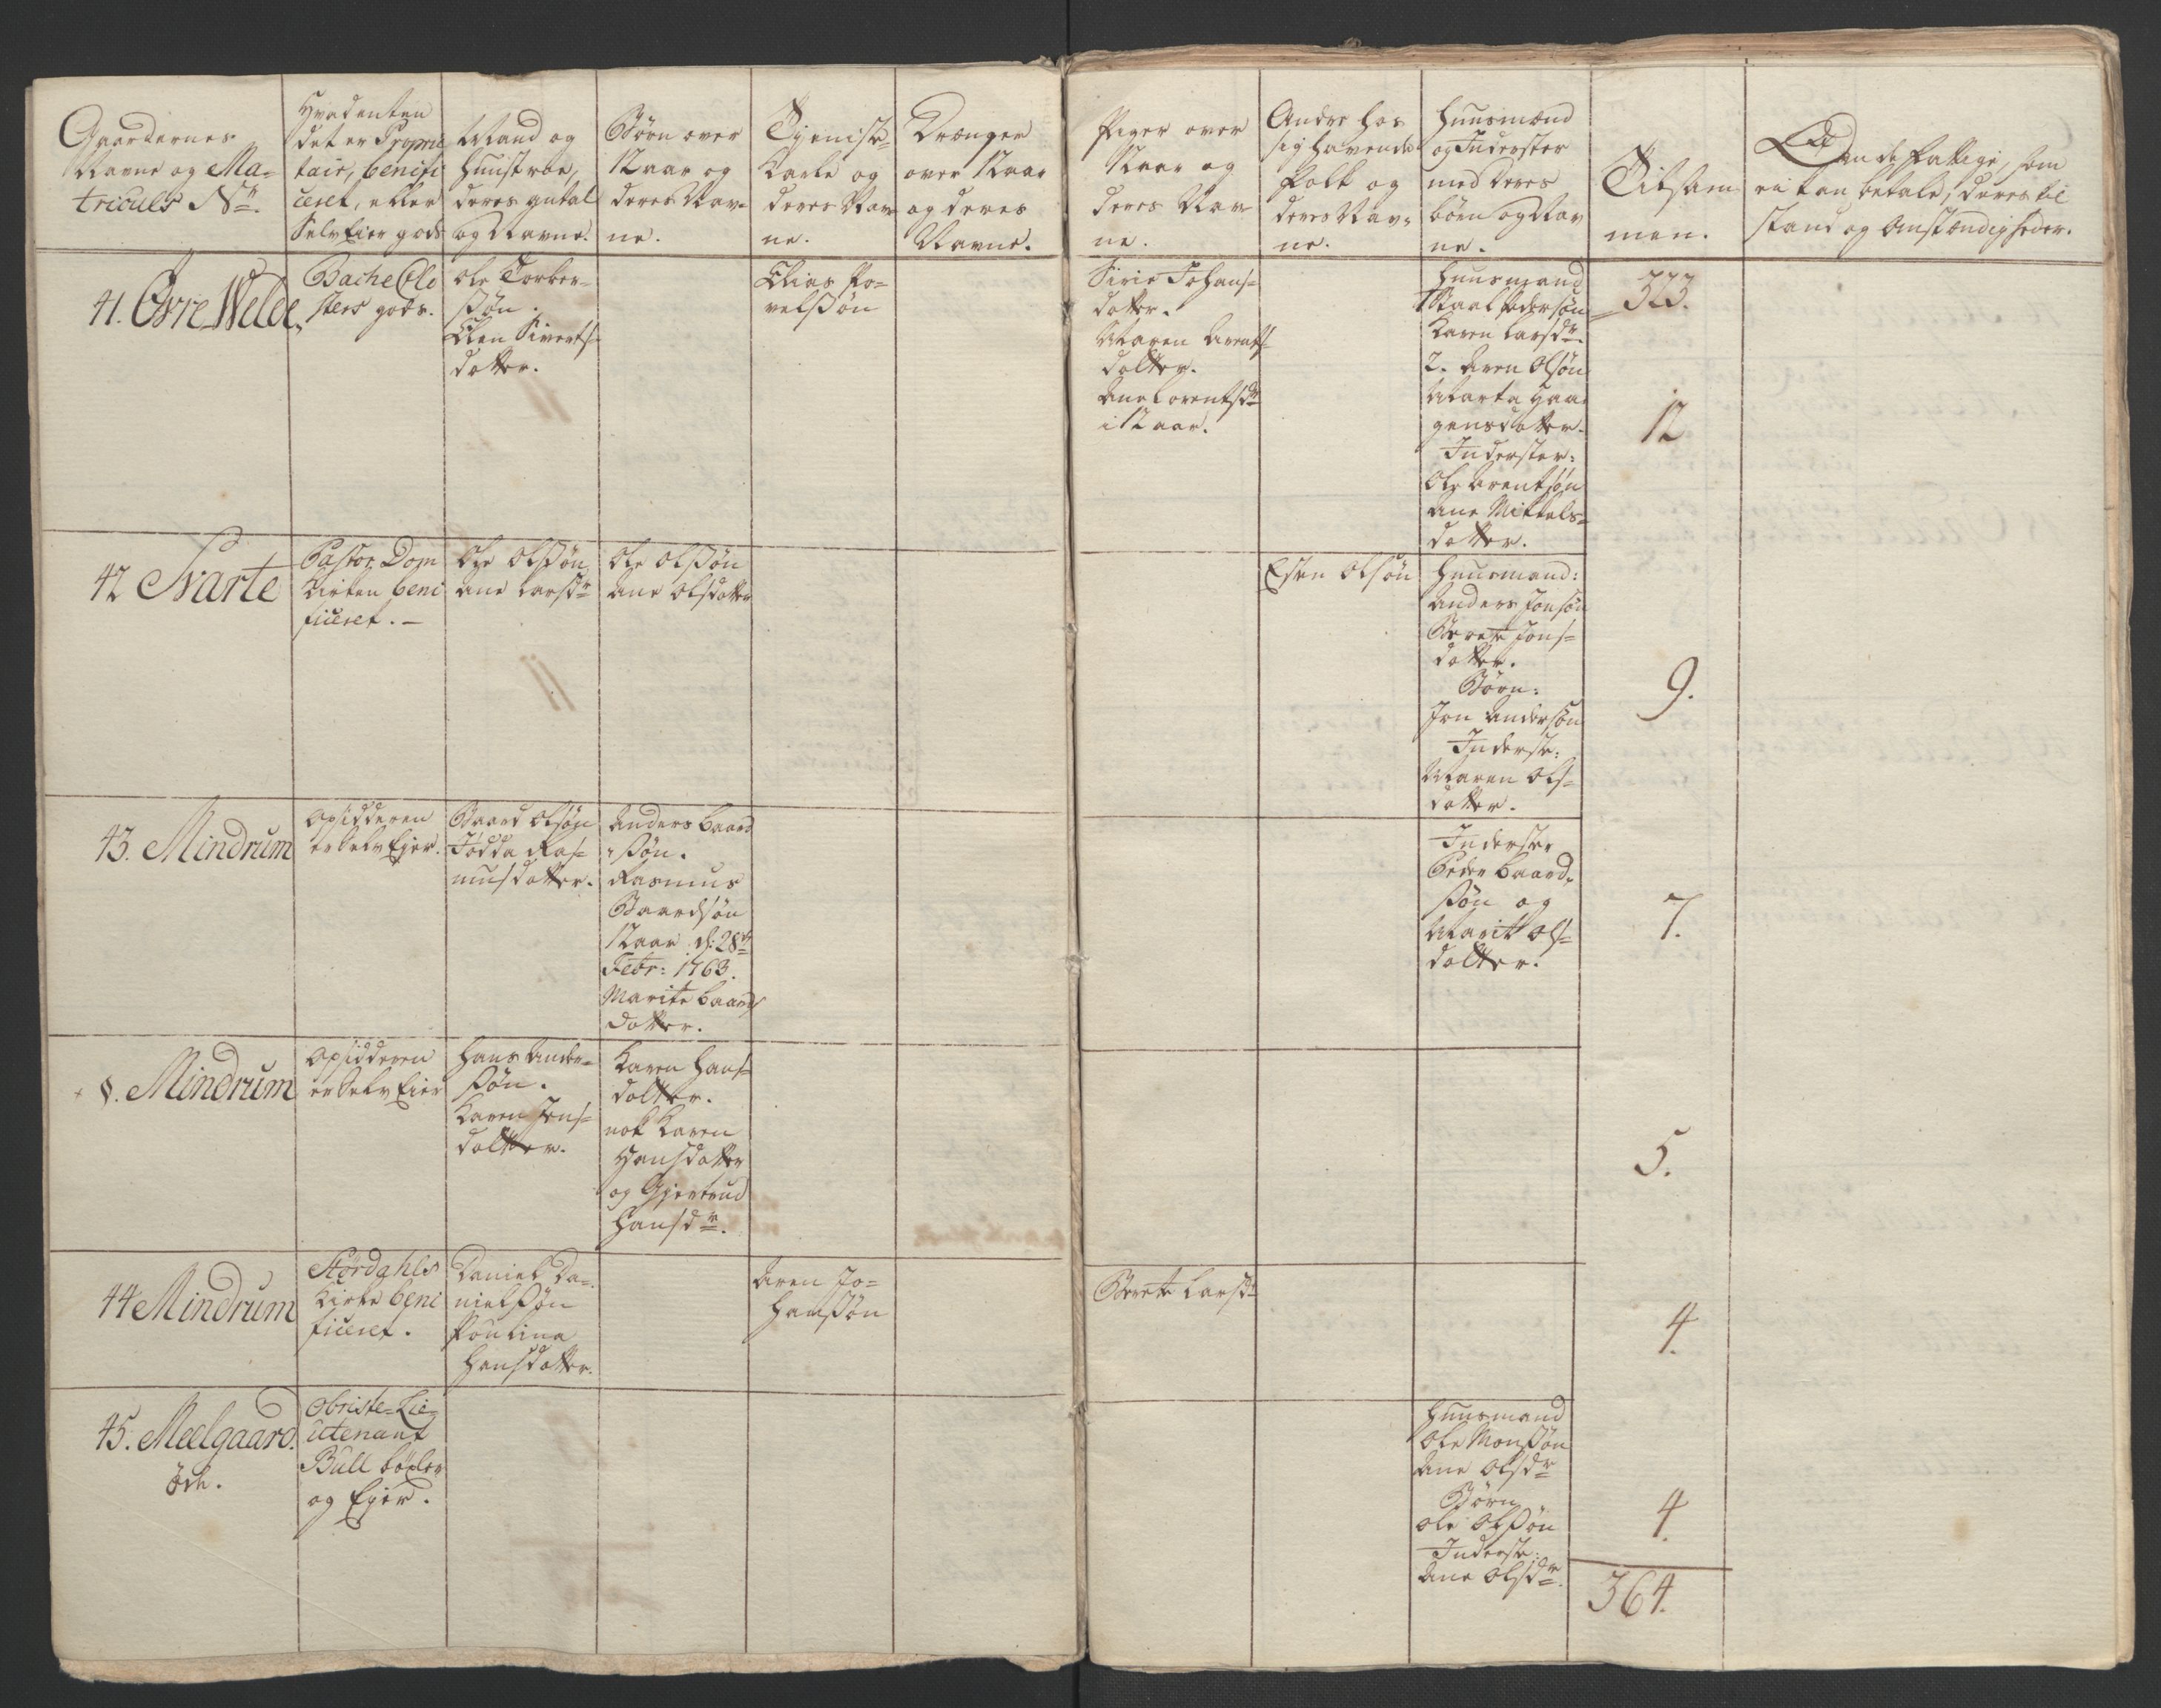 Gaardernes
Navne og Ma-
triculs Nr.
Hvadenten
det er Proprie
tair, benifi
ceret, eller
SelvEier gods
Mand og
Huustroe,
deres antal
og Navne.
Børn over
12 aar og
deres Nav-
ne.
Tjeniste-
Karle og
deres Nav
ne.
Drænger
over 12 aar
og deres
Navne.
Piger over
12 aar og
deres Nav
ne.
Andre hos
sig havende
Folk og
deres Nav-
ne.
Huusmænd
og Inderster
med deres
børn og Nav
ne.
Tilsam
men.
De fattige, som
ei kan betale, deres til
stand og Omstændigheder.
41. Øvre Welde
Bache Clo
sters gods.
Ole Torber-
ßøn.
Elen Siverts-
datter.
Elias Po-
velßøn
Sirie Johans-
datter.
Maren Arents-
datter.
Ane Lorentsdr
i 12 aar.
Huusmand
1 Paal Pedersøn
Karen Larsdr.
2. Aren Olsøn
Marta Haa
gensdatter.
Inderster:
Ole Arentsøn
Ane Mikkels-
datter.
323.
12
42 Svarte
Pastor Dom
Kirken beni
ficeret. –
Ole Olßøn
Ane Larsdr
Ole Olßøn
Ane Olsdatter
Esten Olsøn
Huusmand:
Anders Jonsøn
Berete Jons-
datter.
Børn:
Jon Andersøn
Inderste:
Maren Ols-
datter.
9.
43. Mindrum
Opsidderen
er Selv Ejer.
Baard Olsøn
Jødda Ras-
musdatter.
Anders Baard
ßøn.
Rasmus
Baardsøn
12 aar d: 28de
Febr: 1763.
Marite Baards
datter.
Inderster
Peder Baard-
ßøn og
Marit Ols-
datter.
7.
§. Mindrum
Opsidderen
er Selv Eier
Hans Ander-
ßøn.
Karen Jons-
datter.
Karen Hans-
datter.
nok Karen
Hansdatter
og Gjertrud
Hansdr.
5.
44 Mindrum
Størdahls
Kirke beni
ficeret.
Daniel Da-
nielßøn
Poulina
Hansdatter.
Aren Jo-
hanßøn
Berete Larsdr
4.
45. Meelgaard.
Øde.
Obriste-Lie-
utenant
Bull bøxler
og Ejer.
Huusmand
Ole Monßøn
Ane Olsdr
Børn
Ole Olßøn
Inderste:
Ane Olsdr.
4.
364.